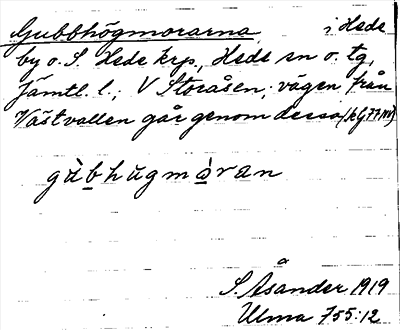 Gubbhögmorarna i Hede
by o. S. Hede krp., Hede sn o. tg,
Jämtl. l.; V Storåsen; vägen från
Västvallen går genom dessa
gùbhùgmòran
S. Åsander 1919
Ulma 755:12